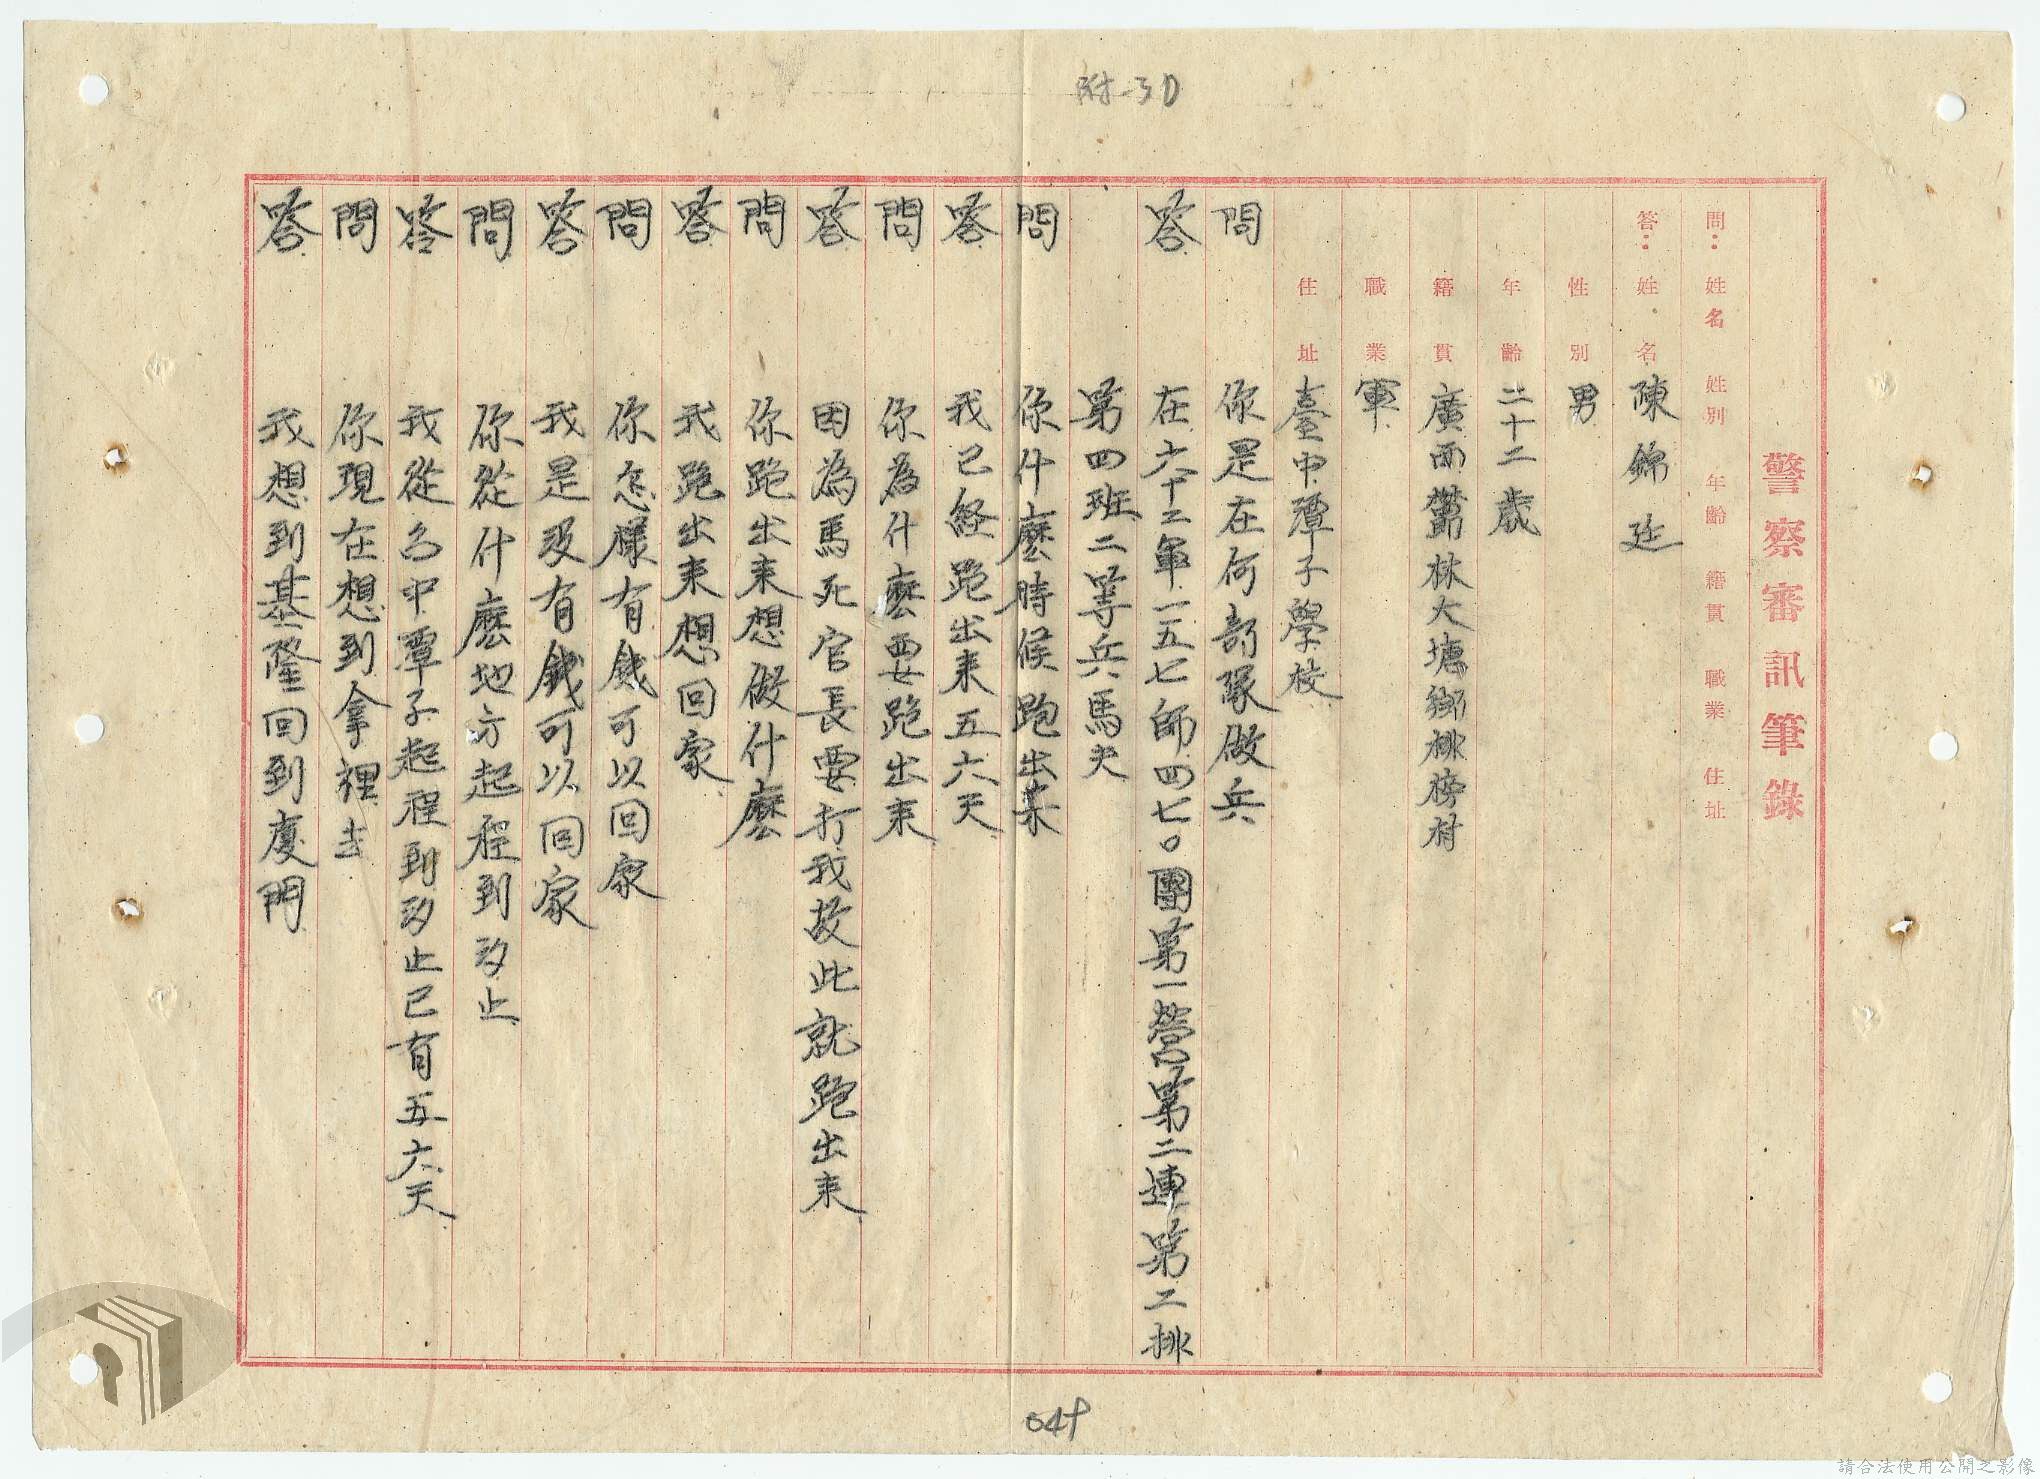 附-30
警察審訊筆錄
問：姓名 姓別 年齡 籍貫 職業 住址
答：姓名 陳錦廷
性別 男
年齡 二十二歲
籍貫 廣西鬱林大塘鄉桃榜村
職業 軍
住址 臺中潭子學校
問 你是在何部隊做兵
答 在六十三軍一五七師四七〇團第一營第二連第二排
第四班二等兵馬夫
問 你什麼時候跑出來
答 我已経跑出来五六天
問 你為什麼要跑出来
答 因為馬死官長要打我故此就跑出来
問 你跑出来想做什麼
答 我跑出来想回家
問 你怎樣有錢可以回家
答 我是没有錢可以回家
問 你從什麼地方起程到汐止
答 我從台中潭子起程到汐止已有五六天
問 你現在想到拿裡去
答 我想到基隆回到廈門
請合法使用公開之影像